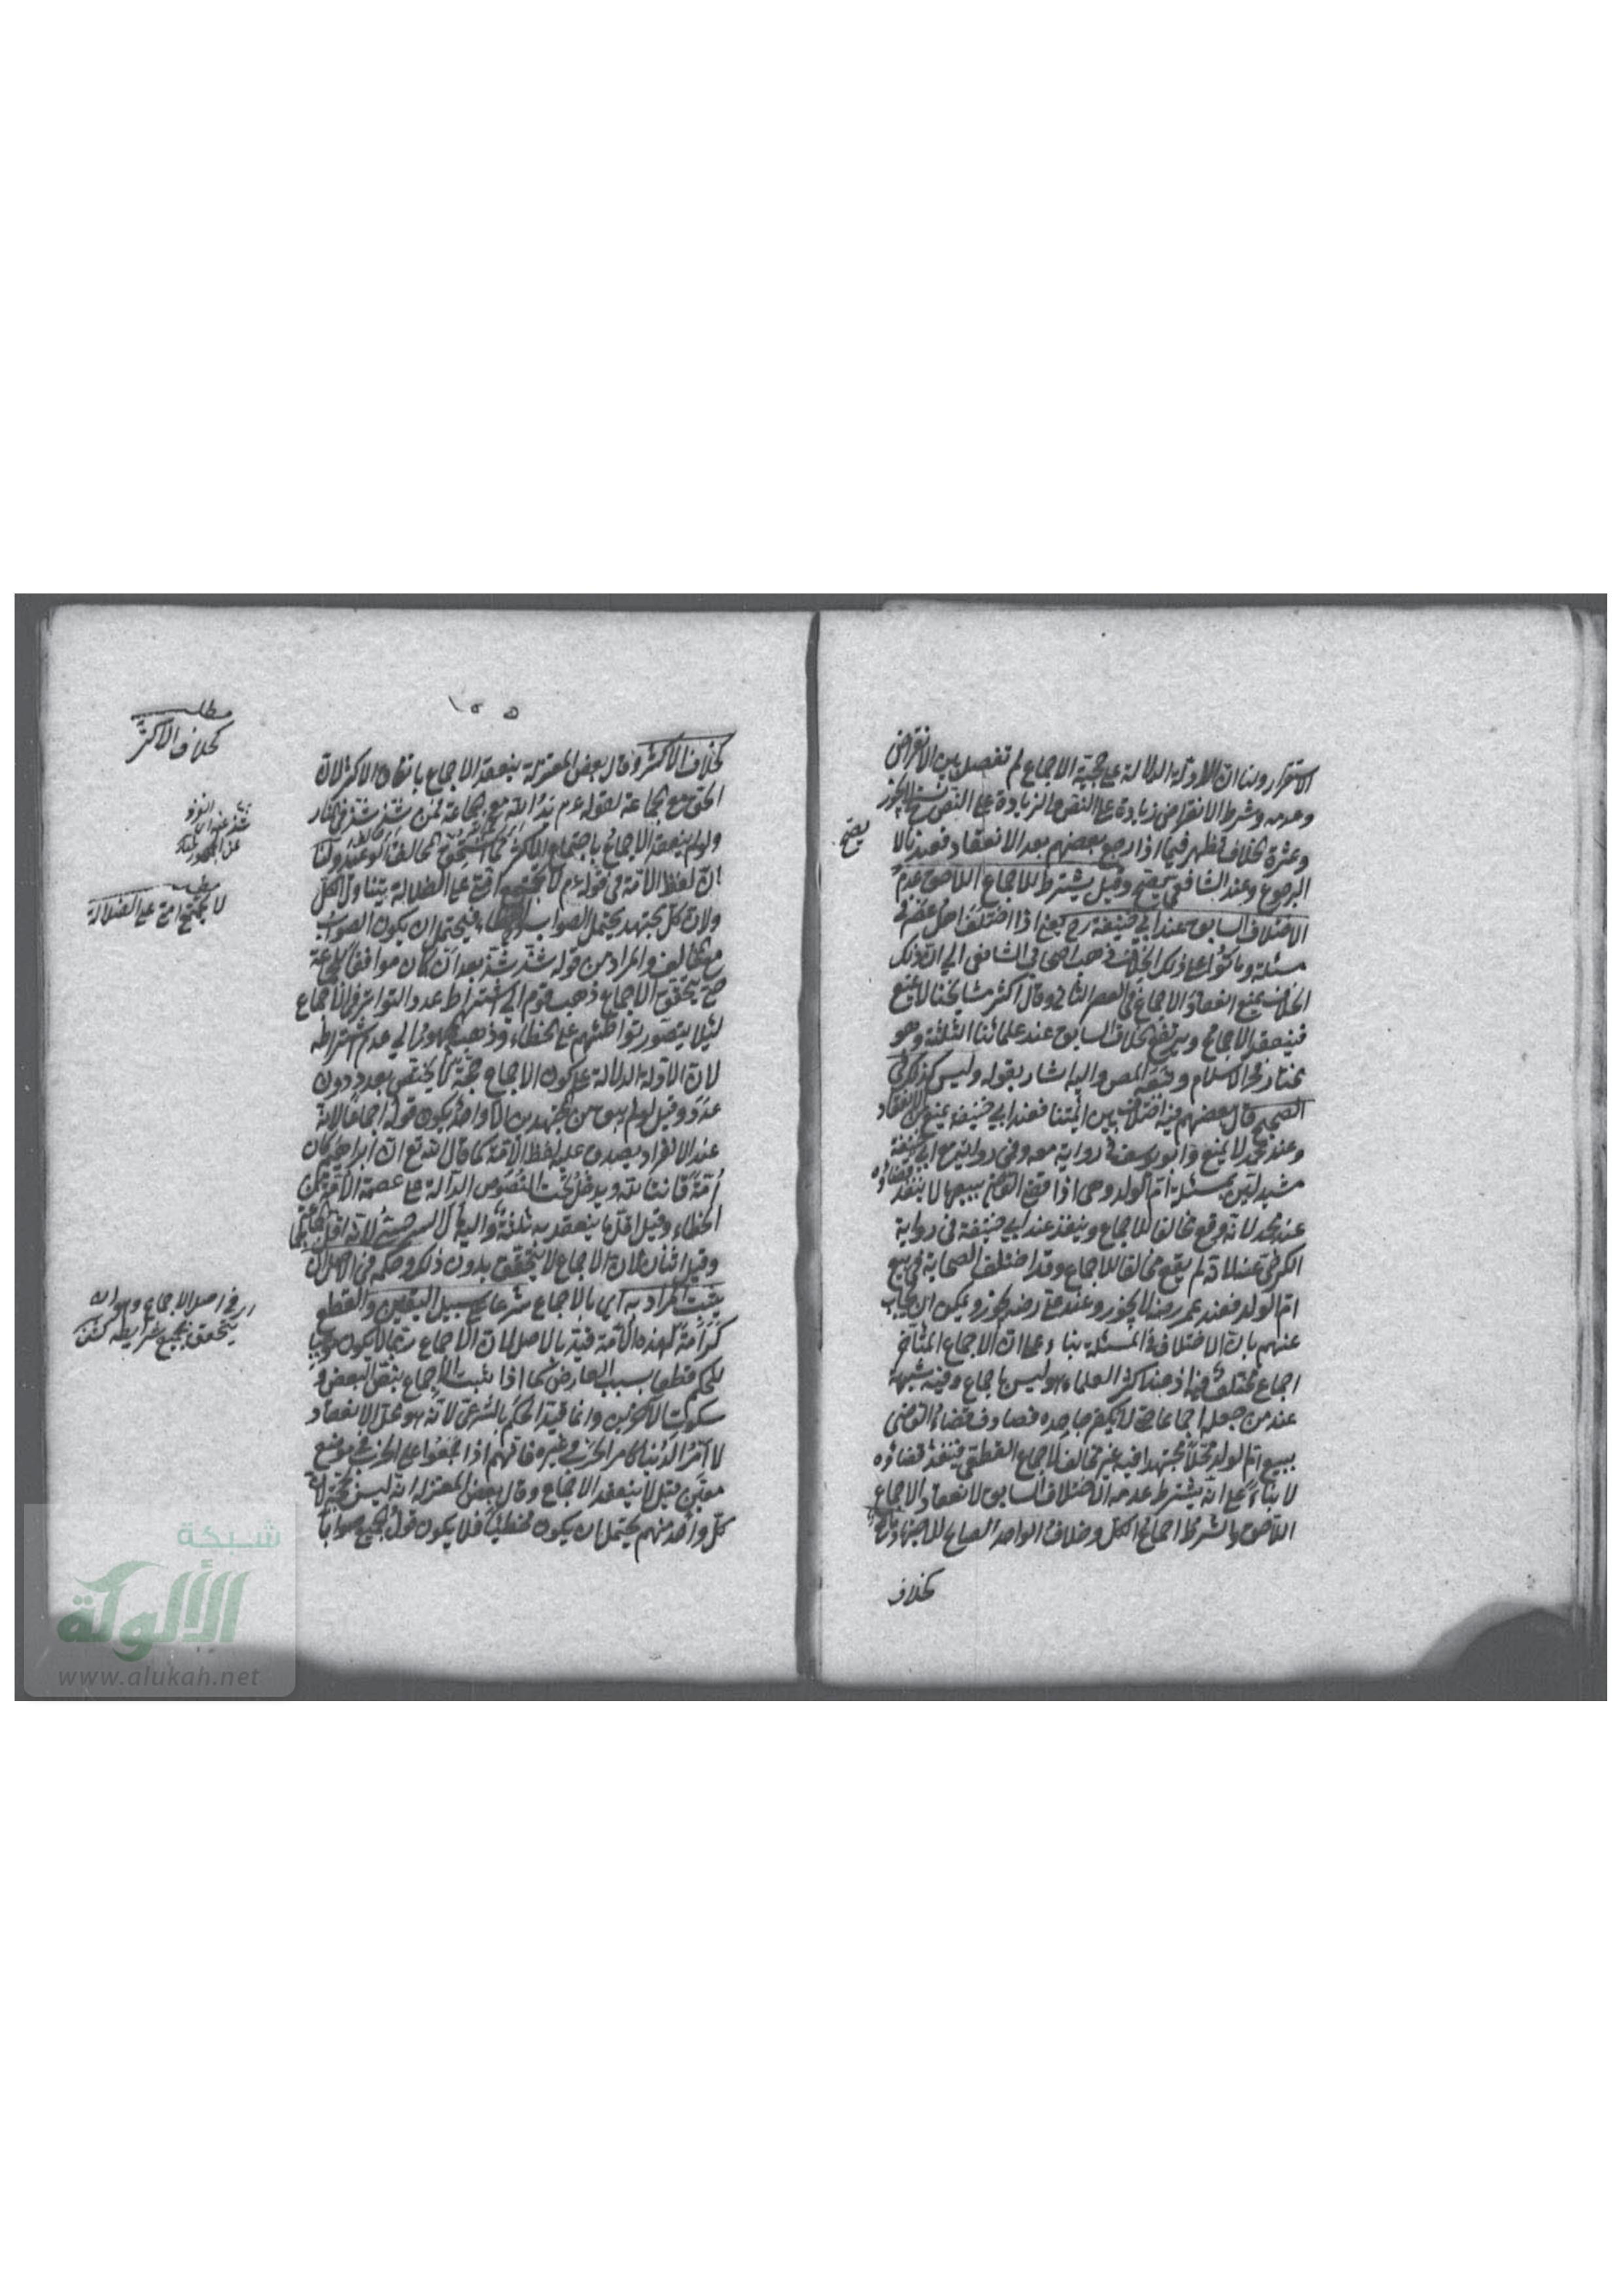 الاستقرار ولنا ان الادلة الدالة على حجية الاجماع لم تفصل بين الانقراض
وعدمه وشرط الانقراض زيادة على النص والزيادة على النص نسخ لا يجوز
وثمرة الخلاف تظهر فيما اذا رجع بعضهم بعد الانعقاد فعندنا لا
يصح
الرجوع وعند الشافعي يصح وقيل يشترط للاجماع اللاحق عدم
الاختلاف السابق عند ابي حنيفة رح يعني اذا اختلف اهل عصر في
مسئلة وماتوا على ذلك الخلاف ذهب اصحاب الشافعي الى ان ذلك
الخلاف يمنع انعقاد الاجماع في العصر الثاني وقال اكثر مشايخنا لا يمنع
فينعقد الاجماع ويرتفع الخلاف السابق عند علمائنا الثلثة وهو
مختار فخر الاسلام وتبعه المص واليه اشار بقوله وليس كذلك في
الصحيح قال بعضهم فيه اختلاف بين ائمتنا فعند ابي حنيفة يمنع من الانعقاد
وعند محمد لا يمنع وابو يوسف في رواية معه وفي رواية مع ابي حنيفة
مستدلين بمسئلة ام الولد وهى اذا قضى القاضي ببيعها لا ينفذ قضاؤه
عند محمد لانه وقع مخالفا للاجماع وينفذ عند ابي حنيفة في رواية
الكرخي عنه لانه لم يقع مخالفا للاجماع وقد اختلف الصحابة في بيع
ام الولد فعند عمر رضه لا يجوز وعند علي رضه يجوز ويمكن ان يجاب
عنهم بان الاختلاف في المسئلة بناء على ان الاجماع المتأخر
اجماع مختلف فيه اذ عند اكثر العلماء هو ليس باجماع وفيه شبهة
عند من جعله اجماعا حتى لا يكفر جاحده فصادف قضاء القاضي
ببيع ام الولد محلا مجتهدا فيه غير مخالف للاجماع القطعي فينفذ قضاؤه
لا بناء على انه يشترط عدم الاختلاف السابق لانعقاد الاجماع
اللاحق والشرط اجماع الكل وخلاف الواحد الصالح للاجتهاد مانع
كخلاف
١٥٥
كخلاف الاكثر وقال بعض المعتزلة ينعقد الاجماع باتفاق الاكثر لان
الحق مع الجماعة لقوله عم يد الله مع الجماعة فمن شذ شذ في النار
ولو لم ينعقد الاجماع باجتماع الاكثر لما استحق مخالفه الوعيد ولنا
ان لفظ الامة في قوله عم لا تجتمع امتي على الضلالة يتناول الكل
ولان كل مجتهد يحتمل الصواب والخطاء فيحتمل ان يكون الصواب
مع المخالف والمراد من قوله شذ شذ بعد ان كان موافقا للجماعة
حتى يتحقق الاجماع ذهب قوم الى اشتراط عدد التواتر في الاجماع
لئلا يتصور تواطئهم على الخطاء وذهب الجمهور الى عدم اشتراطه
لان الادلة الدالة على كون الاجماع حجة لا يختص بعدد دون
عدد وقيل لو لم يبق من المجتهدين الا واحد يكون قوله اجماعا لانه
عند الانفراد يصدق عليه لفظ الامة كما قال الله تع ان ابراهيم كان
امة قانتا لله ويدخل تحت النصوص الدالة على عصمة الامة من
الخطاء وقيل اقل ما ينعقد به ثلثة واليه مال السرخسي لانه اقل الجماعة
وقيل اثنان لان الاجماع لا يتحقق بدون ذلك وحكمه في الاصل ان
يثبت المراد به اى بالاجماع شرعا على سبيل اليقين والقطع
كرامة لهذه الامة قيد بالاصل لان الاجماع ربما لا يكون موجبا
للحكم قطعا بسبب العارض كما اذا ثبت الاجماع بنص البعض و
سكوت الاخرين وانما قيد الحكم بالشرعي لانه هو محل الانعقاد
لا امر الدنيا كامر الحرب وغيره فانهم اذا اجمعوا على الحرب في موضع
معين قيل لا ينعقد الاجماع وقال بعض المعتزلة انه ليس بحجة لان
كل واحد منهم يحتمل ان يكون مخطئا فلا يكون قول الجميع صوابا
مطلب
كخلاف الاكثر
مطلب
لا تجتمع امتي على الضلالة
اى في اصل الاجماع وهو ان
يتحقق بجميع شرايطه
شبكة
الألوكة
www.alukah.net